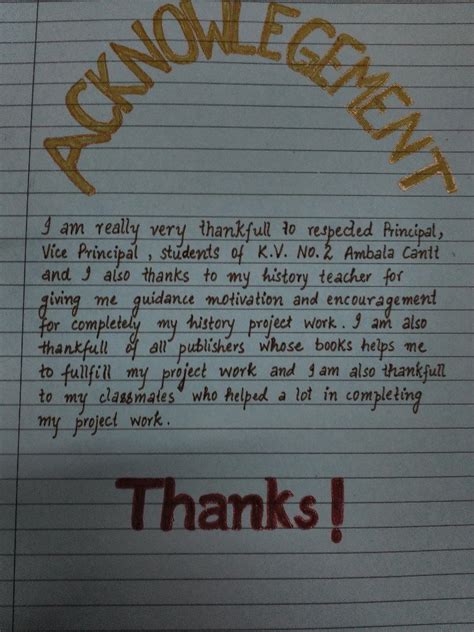 ACKNOWLEGEMENT
I am really very thankfull to respected Principal,
Vice Principal, students of K.V. No.2 Ambala Cantt
and I also thanks to my history teacher for
giving me guidance motivation and encouragement
for completely my history project work. I am also
thankfull of all publishers whose books helps me
to fullfill my project work and I am also thankfull
to my classmates who helped a lot in completing
my project work.
Thanks!